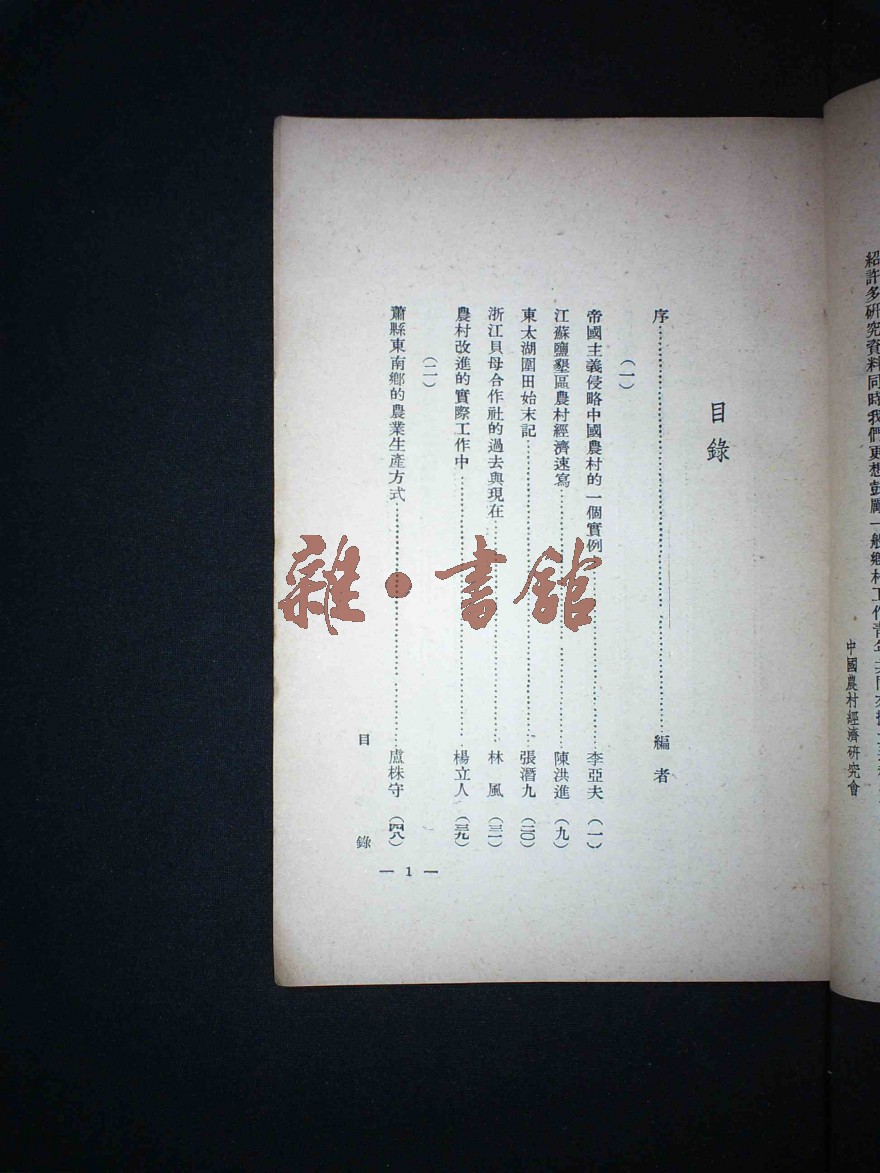 紹許多研究資料同時我們更想鼓勵一般鄉村工作青年
中國農村經濟研究會
目錄
序……編者
(一)
帝國主義侵略中國農村的一個實例……李亞夫(一)
江蘇鹽墾區農村經濟速寫……陳洪進(九)
東太湖圍田始末記……張潛九(二〇)
浙江貝母合作社的過去與現在……林風(三一)
農村改進的實際工作中……楊立人(三九)
(二)
蕭縣東南鄉的農業生產方式……盧株守(四八)
目錄
— 1 —
雜·書館